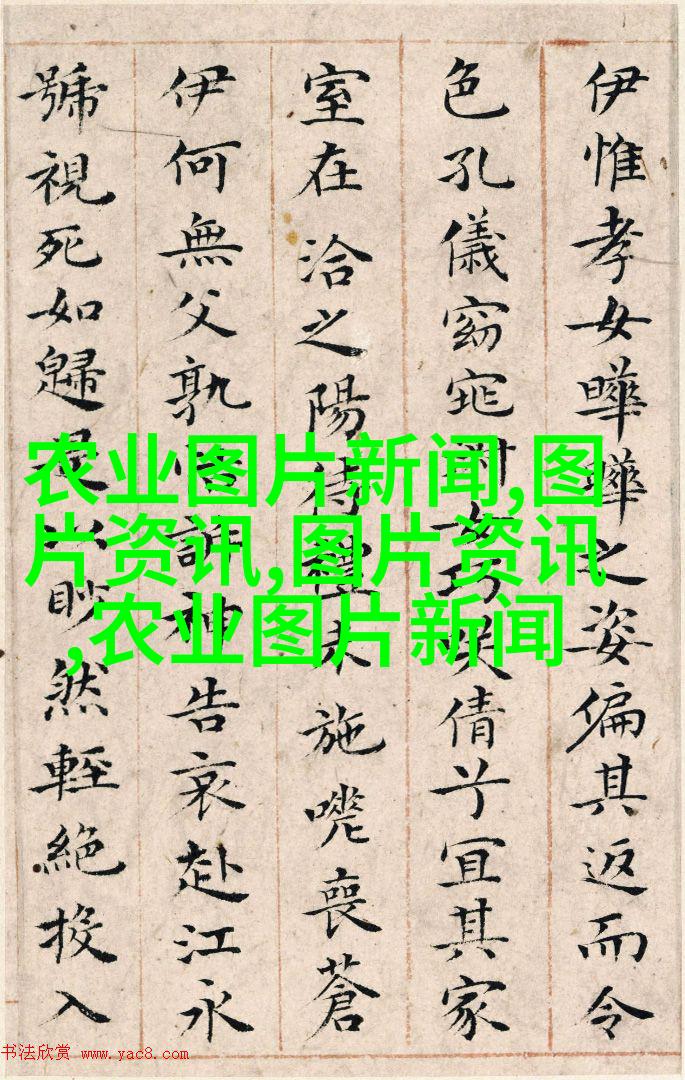 伊惟孝女曄曄之姿偏其返而令
色孔儀窈窕女巧咲倩兮宜其家
室在洽之陽待禮未施嗟喪蒼
伊何無父孰怙訴神告哀赴江永
號視死如歸是以眇然輕絕投入
农业图片新闻,图
片资讯,图片资讯
,农业图片新闻
书法欣赏 www.yac8.com